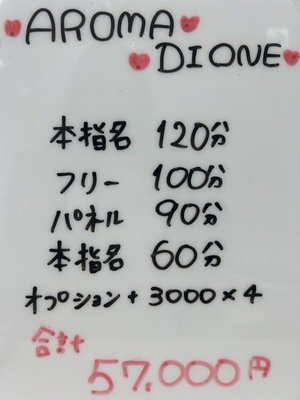 AROMA
DIONE
本指名 120分
フリー 100分
パネル 90分
本指名 60分
オプション + 3000×4
合計
57,000円